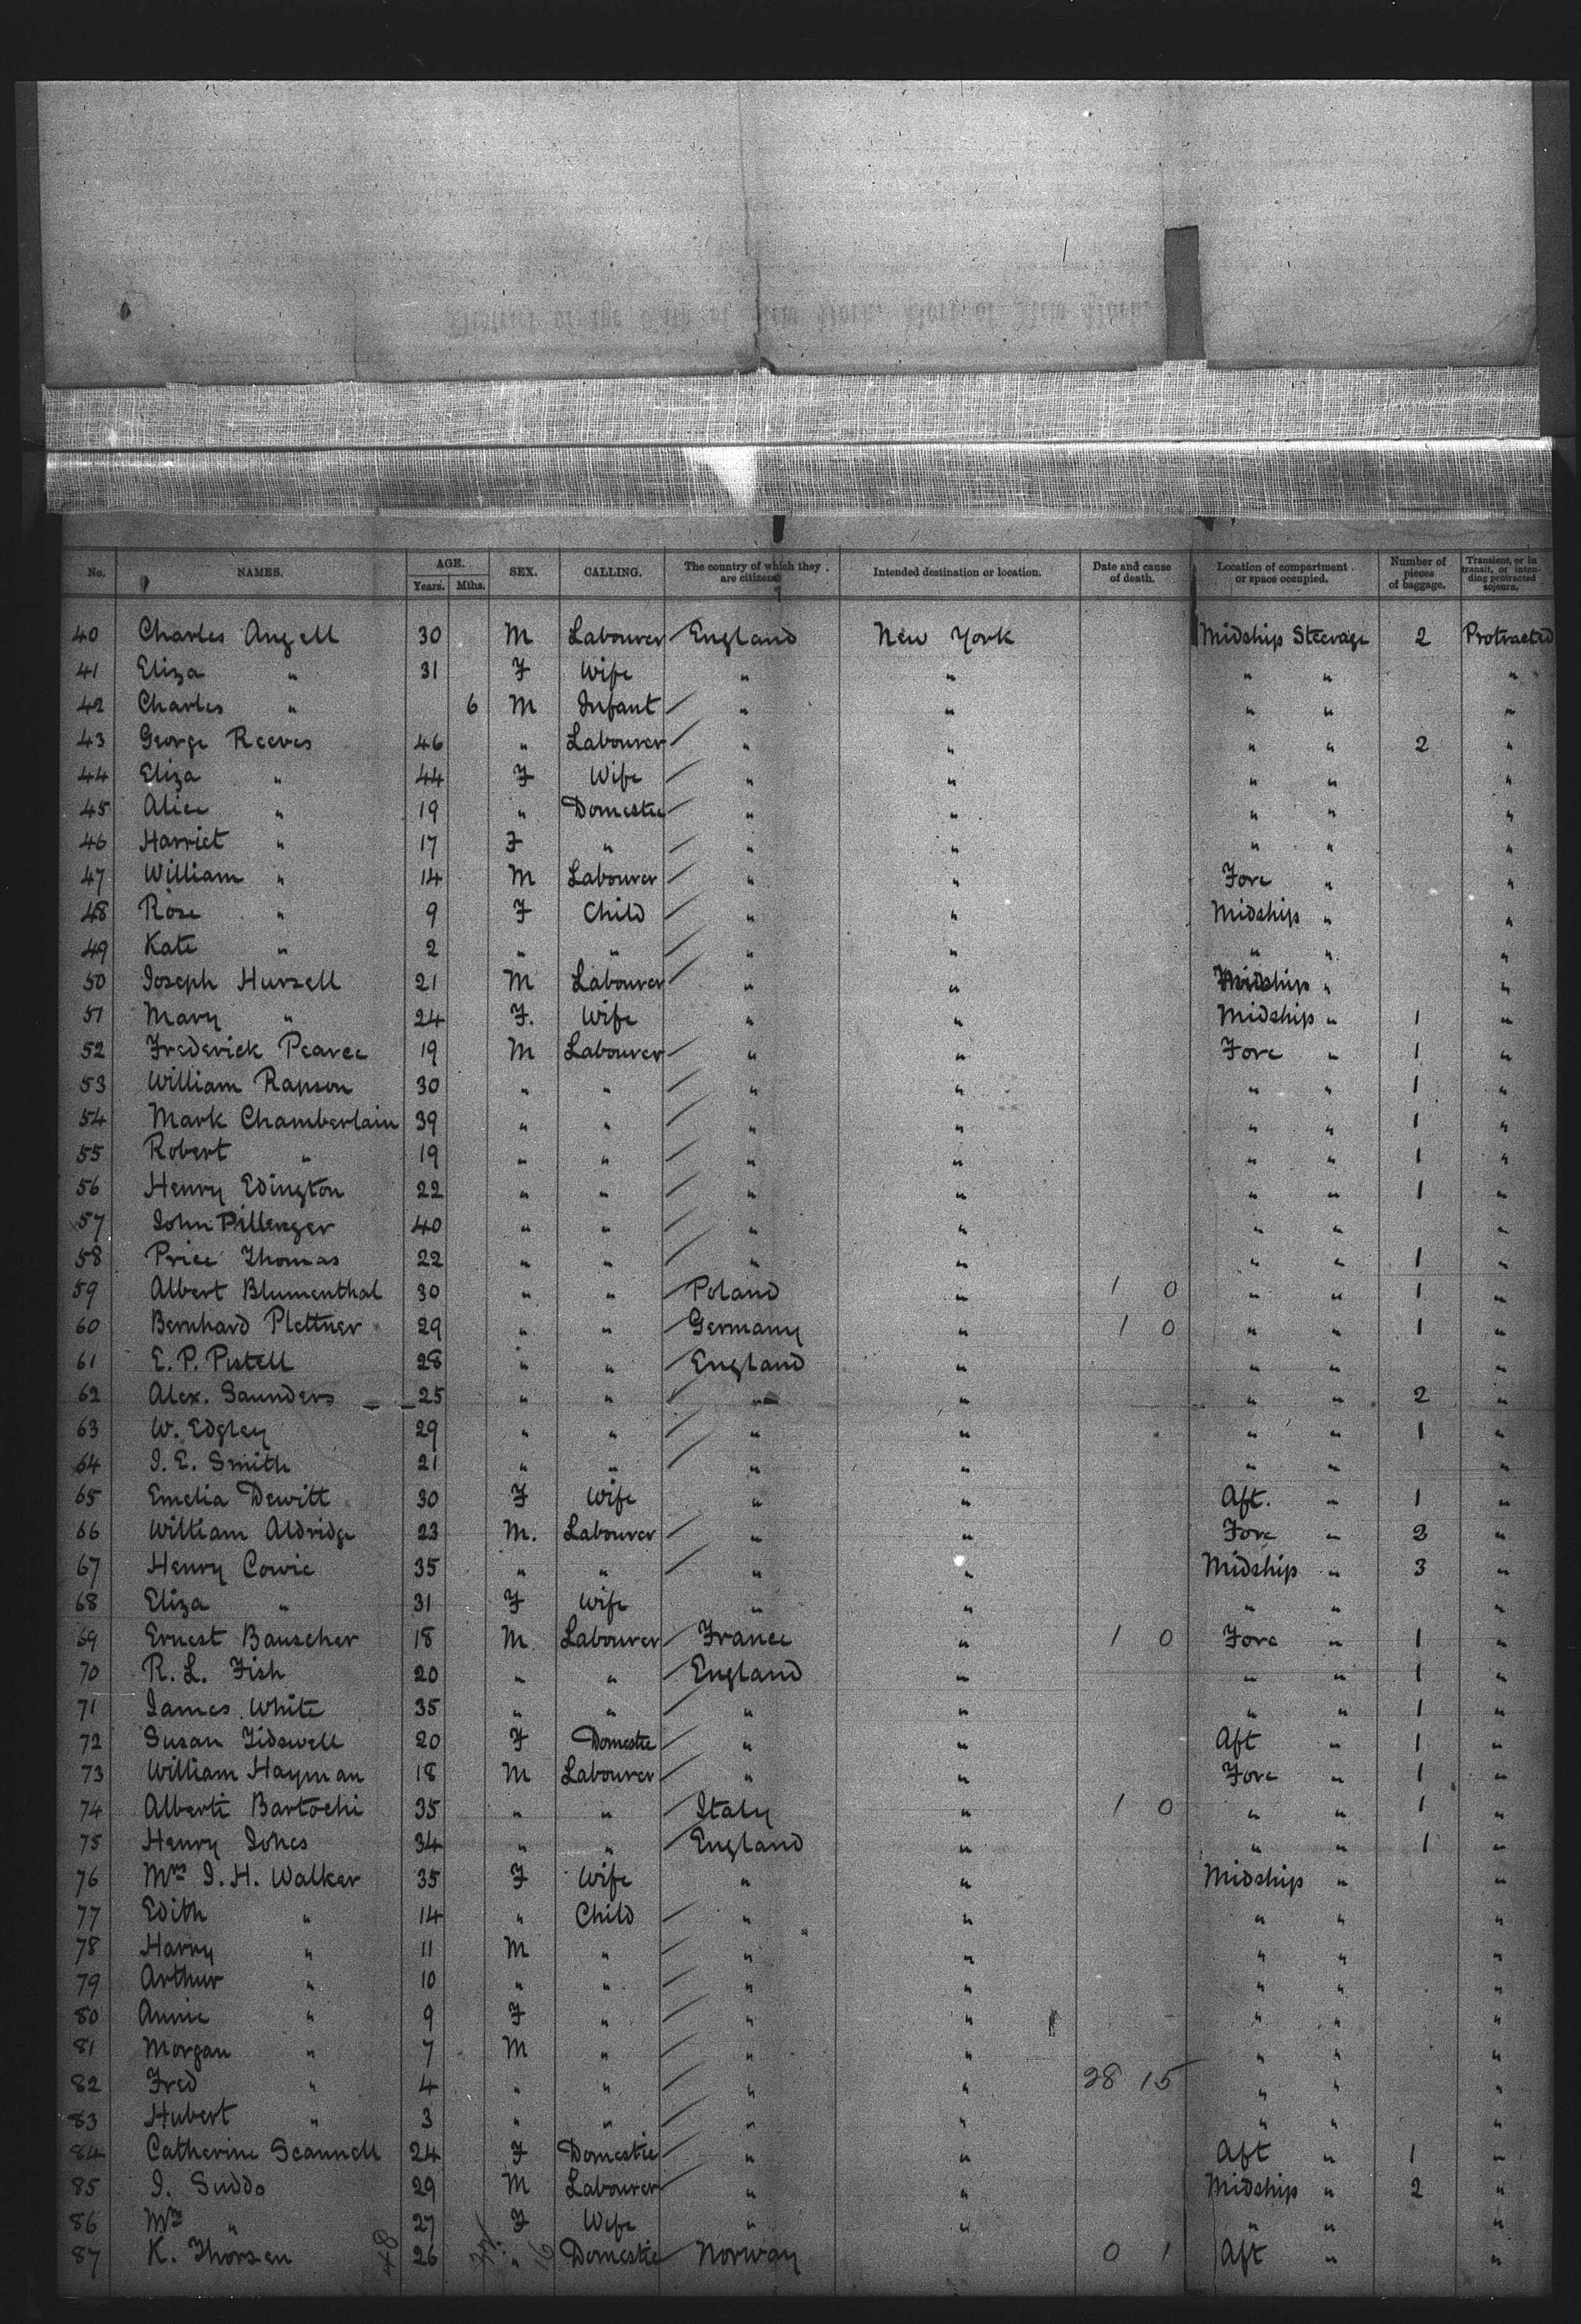 No. NAMES. AGE. Years. Mths. SEX. CALLING. The country of which they are citizens Intended destination or location. Date and cause of death. Location of compartment or space occupied. Number of pieces of baggage. Transient, or in transit, or intending protracted sojourn.
40 Charles Angell 30 M Labourer England New York Midship Steerage 2 Protracted
41 Eliza " 31 F Wife " " " " "
42 Charles " 6 M Infant " " " " "
43 George Reeves 46 " Labourer " " " " 2 "
44 Eliza " 44 F Wife " " " " "
45 Alice " 19 " Domestic " " " " "
46 Harriet " 17 F " " " " " "
47 William " 14 M Labourer " " Fore " "
48 Rose " 9 F Child " " Midship " "
49 Kate " 2 " " " " " " "
50 Joseph Hursell 21 M Labourer " " Midship " "
51 Mary " 24 F. Wife " " Midship " 1 "
52 Frederick Pearce 19 M Labourer " " Fore " 1 "
53 William Rapson 30 " " " " " " 1 "
54 Mark Chamberlain 39 " " " " " " 1 "
55 Robert " 19 " " " " " " 1 "
56 Henry Edington 22 " " " " " " 1 "
57 John Pillenger 40 " " " " " " "
58 Price Thomas 22 " " " " " " 1 "
59 Albert Blumenthal 30 " " Poland " 1 0 " " 1 "
60 Bernhard Plettner 29 " " Germany " 1 0 " " 1 "
61 E. P. Pistell 28 " " England " " " "
62 Alex. Saunders 25 " " " " " " 2 "
63 W. Edgley 29 " " " " " " 1 "
64 J. E. Smith 21 " " " " " " "
65 Emelia Dewitt 30 F Wife " " Aft. " 1 "
66 William Aldridge 23 M. Labourer " " Fore " 2 "
67 Henry Cowie 35 " " " " Midship " 3 "
68 Eliza " 31 F Wife " " " " "
69 Ernest Bauscher 18 M Labourer France " 1 0 Fore " 1 "
70 R. L. Fish 20 " " England " " " 1 "
71 James White 35 " " " " " " 1 "
72 Susan Tidswell 20 F Domestic " " Aft " 1 "
73 William Hayman 18 M Labourer " " Fore " 1 "
74 Alberti Bartochi 35 " " Italy " 1 0 " " 1 "
75 Henry Jones 34 " " England " " " 1 "
76 Mrs J. H. Walker 35 F Wife " " Midship " "
77 Edith " 14 " Child " " " " "
78 Harry " 11 M " " " " " "
79 Arthur " 10 " " " " " " "
80 Annie " 9 F " " " " " "
81 Morgan " 7 M " " " " " "
82 Fred " 4 " " " " 28 15 " " "
83 Hubert " 3 " " " " " " "
84 Catherine Scannell 24 F Domestic " " Aft " 1 "
85 J. Suddo 29 M Labourer " " Midship " 2 "
86 Mrs " 27 F Wife " " " " "
87 K. Thorsen 48 26 " 16 Domestic Norway 0 1 Aft " "